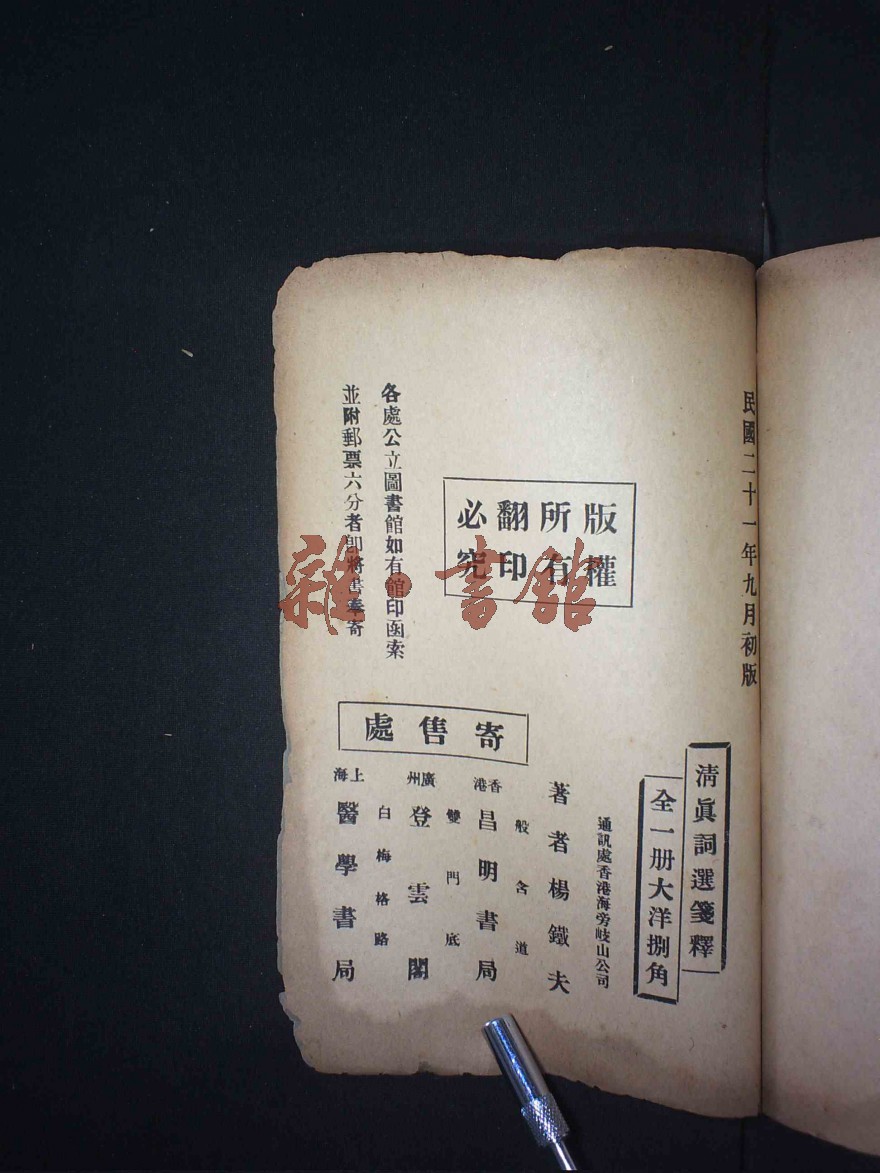 民國二十一年九月初版
清眞詞選箋釋
全一册大洋捌角
版權
所有
翻印
必究
各處公立圖書館如有館印函索
並附郵票六分者卽將書奉寄
通訊處香港海旁岐山公司
著者楊鐵夫
寄售處
香港
般含道
昌明書局
廣州
雙門底
登雲閣
上海
白梅格路
醫學書局
雜·書館